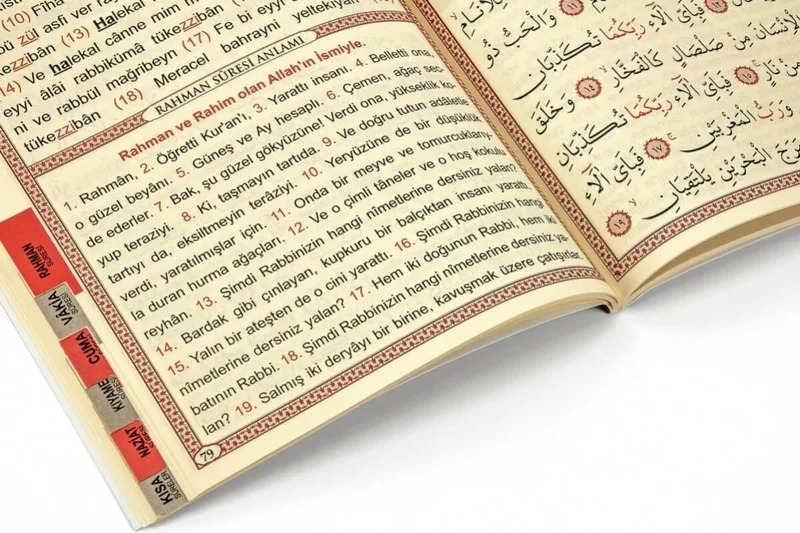 (10) Fîha
bü zül asfi ver
kezzibân (13) Halekal
(14) Ve halekal cânne mim
eyyi âlâi rabbikümâ tükezzibân (17) Fe bi eyyi
ni ve rabbül mağribeyn
tükezzibân (18) Meracel bahrayni yeltekiyân
RAHMAN SÛRESİ ANLAMI
Rahman ve Rahim olan Allah'ın İsmiyle.
1. Rahmân, 2. Öğretti Kur'an'ı, 3. Yarattı insanı. 4. Belletti ona,
o güzel beyânı. 5. Güneş ve Ay hesaplı. 6. Çemen, ağaç sec-
de ederler. 7. Bak, şu güzel gökyüzüne! Verdi ona, yükseklik, ko-
yup teraziyi. 8. Ki, taşmayın tartıda. 9. Ve doğru tutun adâletle,
tartıyı da, eksiltmeyin terâziyi. 10. Yeryüzüne de bir düşüklük
verdi, yaratılmışlar için. 11. Onda bir meyve ve tomurcuklany-
la duran hurma ağaçları. 12. Ve o çimli tâneler ve o hoş kokulu
reyhân. 13. Şimdi Rabbinizin hangi nîmetlerine dersiniz yalan?
14. Bardak gibi çınlayan, kupkuru bir balçıktan insanı yarattı.
15. Yalın bir ateşten de o cini yarattı. 16. Şimdi Rabbinizin hangi
nîmetlerine dersiniz yalan? 17. Hem iki doğunun Rabbi, hem iki
batının Rabbi. 18. Şimdi Rabbinizin hangi nîmetlerine dersiniz ya-
lan? 19. Salmış iki deryâyı bir birine, kavuşmak üzere çatışırlar.
79
RAHMAN SÛRESİ
VÂKIA SÛRESİ
CUMA SÛRESİ
KIYAME SÛRESİ
NAZİAT SÛRESİ
KISA SÛRELER
وَالْحَبُّ ذُو
فَبِأَيِّ آلَاءِ رَبِّكُمَا تُكَذِّبَانِ
الْإِنْسَانَ مِنْ صَلْصَالٍ كَالْفَخَّارِ ﴿١٤﴾ وَخَلَقَ
مِنْ نَارٍ ﴿١٥﴾ فَبِأَيِّ آلَاءِ رَبِّكُمَا تُكَذِّبَانِ
وَرَبُّ الْمَغْرِبَيْنِ ﴿١٧﴾ فَبِأَيِّ آلَاءِ
مَرَجَ الْبَحْرَيْنِ يَلْتَقِيَانِ ﴿١٩﴾